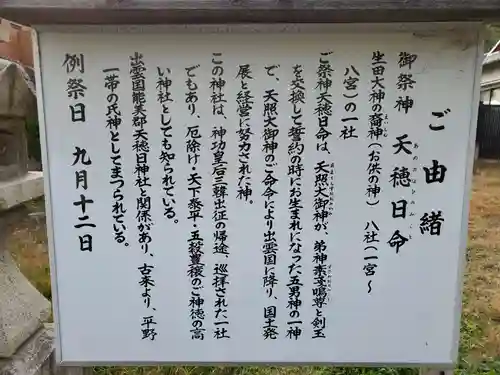 ご由緒
御祭神　天穂日命
あめのほひのみこと
生田大神の裔神（お供の神）　八社（一宮～
八宮）の一社
ご祭神天穂日命は、天照大御神が、弟神素戔嗚尊と剣玉
を交換して誓約の時にお生まれになった五男神の一神
で、天照大御神のご命令により出雲国に降り、国土発
展と経営に努力された神。
この神社は、神功皇后三韓出征の帰途、巡拝された一社
でもあり、厄除け・天下泰平・五穀豊穣のご神徳の高
い神社としても知られている。
出雲国能美郡天穂日神社と関係があり、古来より、平野
一帯の氏神としてまつられている。
例祭日　九月十二日